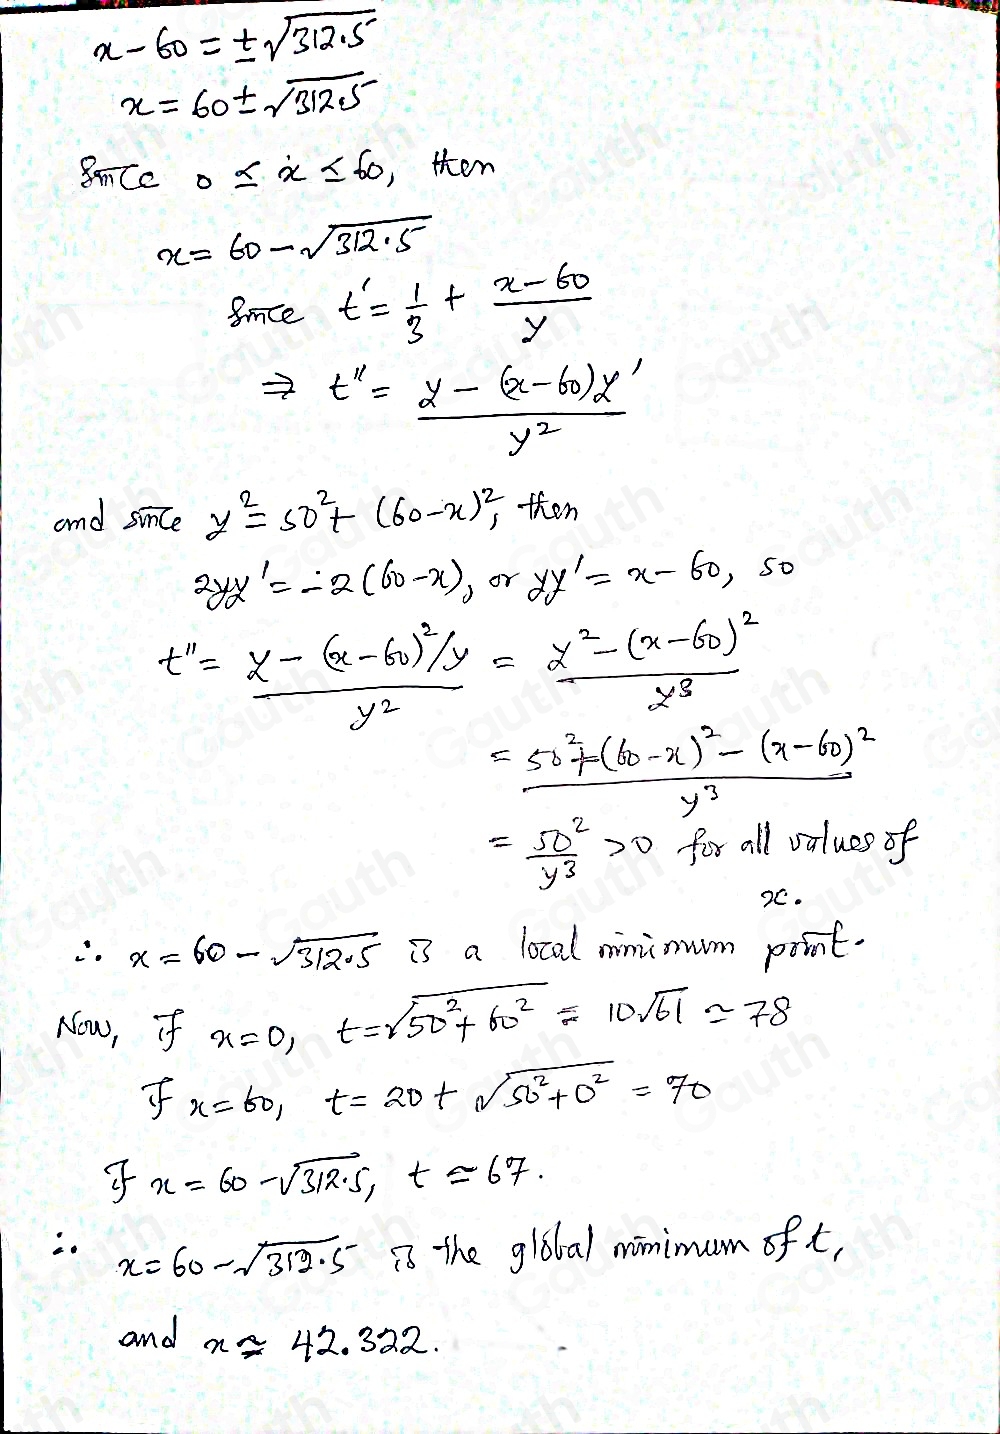 x - 60 = ± √312.5
x = 60 ± √312.5
Since 0 ≤ x ≤ 60, then
x = 60 - √312.5
Since t' = 1/3 + (x - 60)/y
⇒ t'' = (y - (x - 60)y')/y²
and since y² = 50² + (60 - x)², then
2yy' = -2(60 - x), or yy' = x - 60, so
t'' = (y - (x - 60)²/y)/y² = (y² - (x - 60)²)/y³
= (50² + (60 - x)² - (x - 60)²)/y³
= 50²/y³ > 0 for all values of
x.
∴ x = 60 - √312.5 is a local minimum point.
Now, if x = 0, t = √(50² + 60²) = 10√61 ≃ 78
If x = 60, t = 20 + √(50² + 0²) = 70
If x = 60 - √312.5, t ≃ 67.
∴ x = 60 - √312.5 is the global minimum of t,
and x ≅ 42.322.